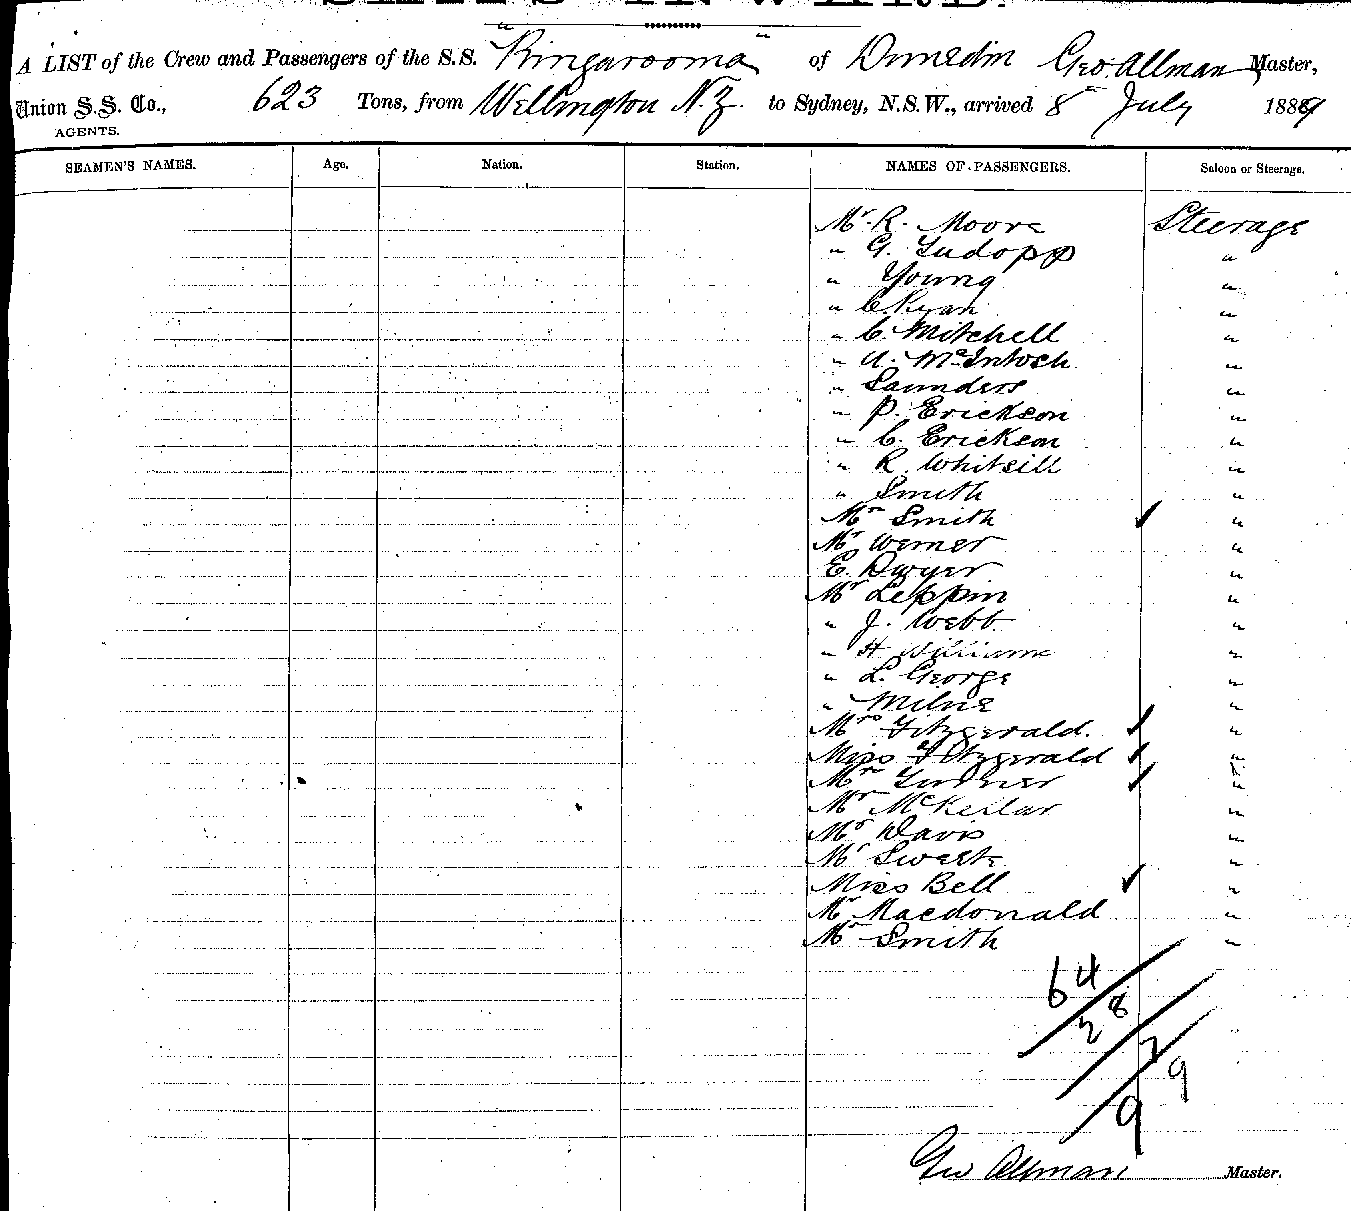 SHIPS INWARD.
A LIST of the Crew and Passengers of the S.S. "Ringarooma" of Dunedin Geo. Allman Master,
Union S.S. Co., 623 Tons, from Wellington N.Z. to Sydney, N.S.W., arrived 8" July 1889
AGENTS.
SEAMEN'S NAMES. Age. Nation. Station. NAMES OF PASSENGERS. Saloon or Steerage.
Mr R. Moore Steerage
" G. "
" Young "
" C. Ryan "
" C. Mitchell "
" A. McIntosh "
" Saunders "
" P. Erickson "
" C. Erickson "
" R. Whitsill "
" Smith "
Mrs Smith ✓ "
Mr Werner "
E. Dwyer "
Mr Leppin "
" J. Webb "
" H Williams "
" L. George "
" Milne "
Mrs Fitzgerald. ✓ "
Miss Fitzgerald ✓ "
✓ "
Mr McKellar "
Mr Davis "
Mr "
Miss Bell ✓ "
Mr Macdonald "
Mr Smith "
64
28
7
9 9
Geo Allman Master.